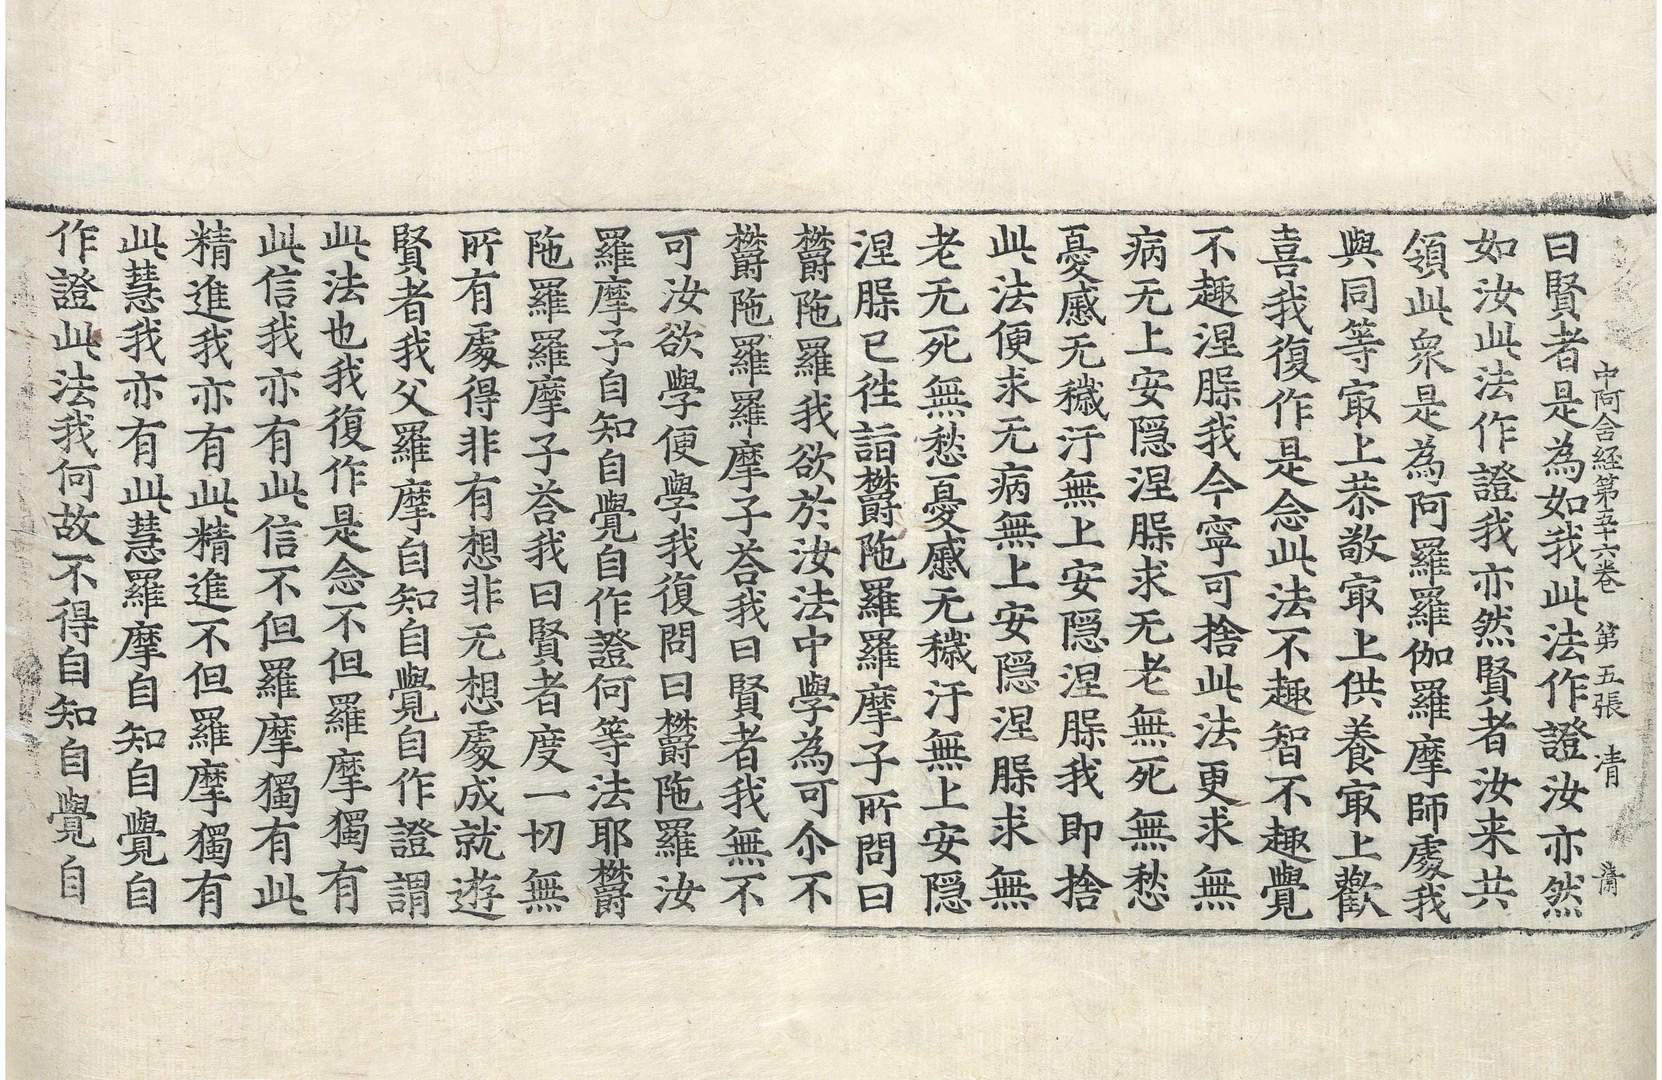 中阿含経第五十六巻 第五張 清
曰賢者是為如我此法作證汝亦然
如汝此法作證我亦然賢者汝来共
領此衆是為阿羅羅伽羅摩師處我
與同等㝡上恭敬㝡上供養㝡上歡
喜我復作是念此法不趣智不趣覺
不趣涅槃我今寧可捨此法更求無
病无上安隠涅槃求无老無死無愁
憂慼无穢汙無上安隠涅槃我即捨
此法便求无病無上安隠涅槃求無
老无死無愁憂慼无穢汙無上安隠
涅槃已徃詣欝陁羅羅摩子所問曰
欝陁羅我欲於汝法中學為可尒不
欝陁羅羅摩子荅我曰賢者我無不
可汝欲學便學我復問曰欝陁羅汝
羅摩子自知自覺自作證何等法耶欝
陁羅羅摩子荅我曰賢者度一切無
所有處得非有想非无想處成就遊
賢者我父羅摩自知自覺自作證謂
此法也我復作是念不但羅摩獨有
此信我亦有此信不但羅摩獨有此
精進我亦有此精進不但羅摩獨有
此慧我亦有此慧羅摩自知自覺自
作證此法我何故不得自知自覺自